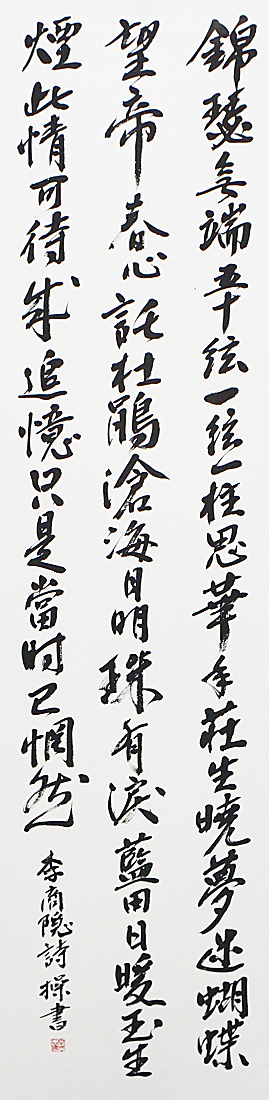 錦瑟無端五十絃一絃一柱思華年莊生曉夢迷蝴蝶
望帝春心託杜鵑滄海月明珠有淚藍田日暖玉生
煙此情可待成追憶只是當時已惘然
李商隱詩操書